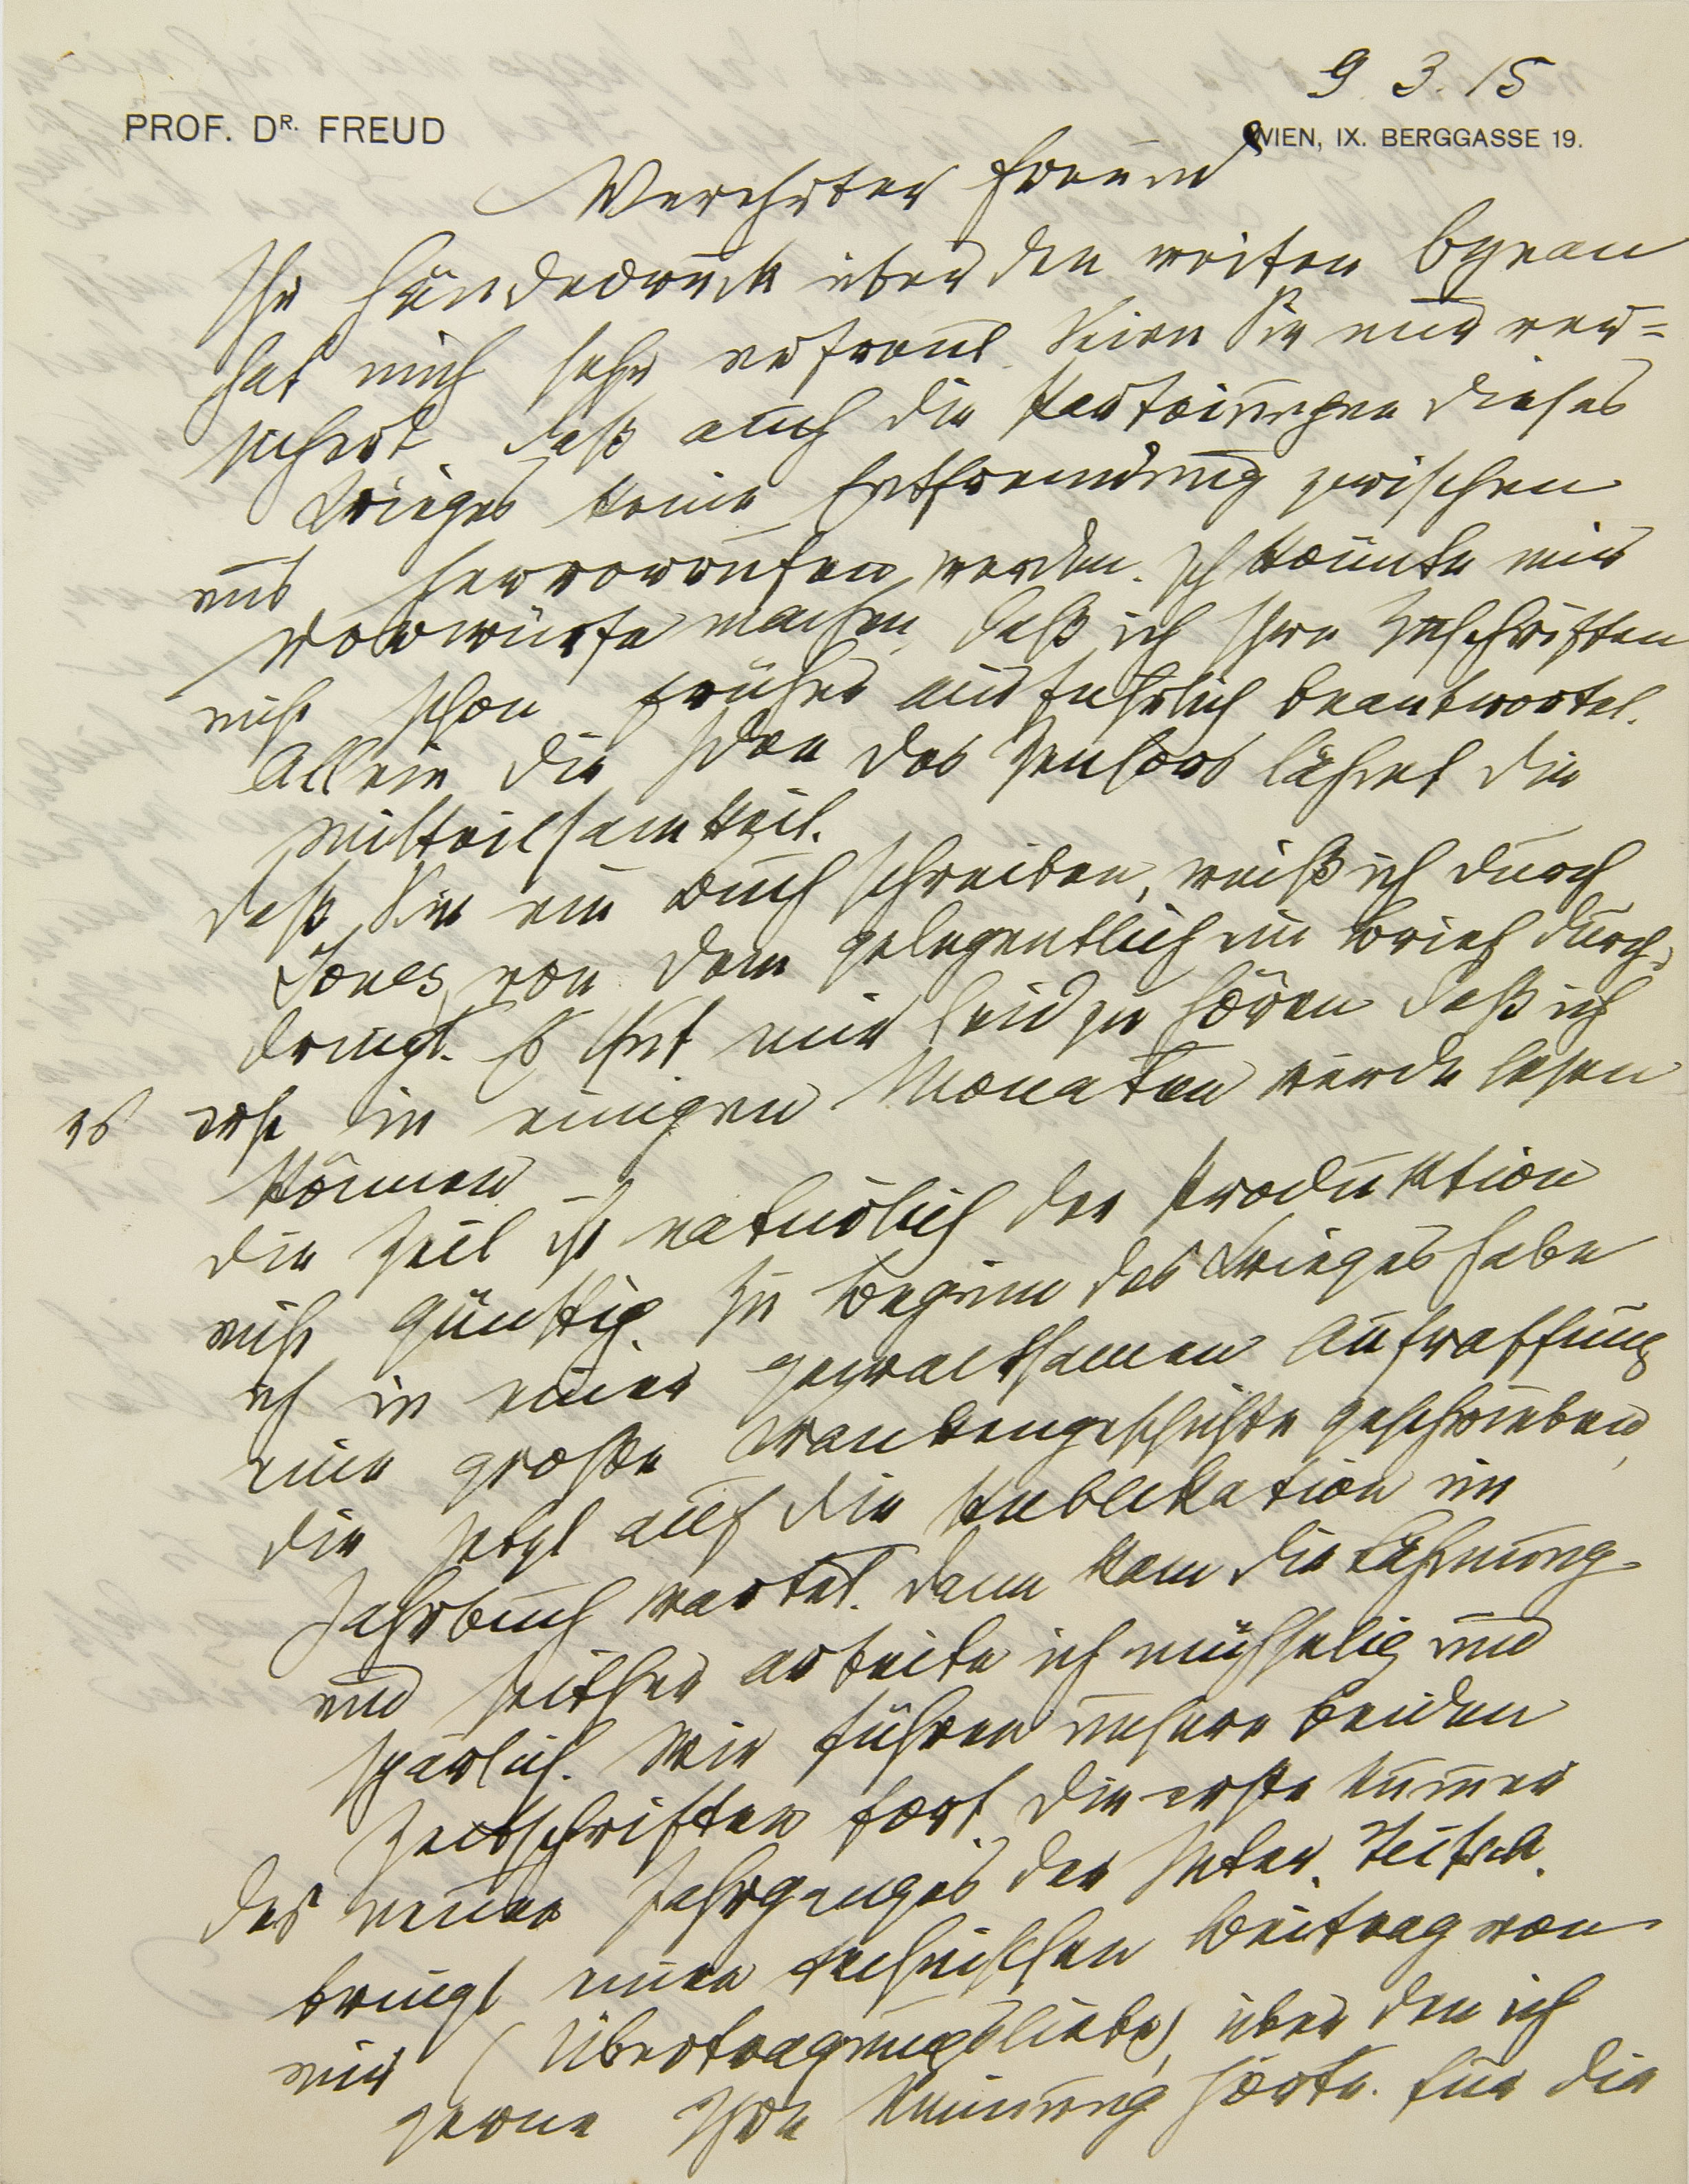 9. 3. 15
PROF. DR. FREUD
WIEN, IX. BERGGASSE 19.
Verehrter Freund
Ihr Händedruck über den weiten Ozean
hat mich sehr erfreut. Seien Sie nur ver=
sichert, daß auch die Parteiungen dieses
Krieges keine Entfremdung zwischen
uns hervorrufen werden. Ich könnte mir
Vorwürfe machen, daß ich Ihre Zuschriften
nicht schon früher ausführlich beantwortet.
Allein die Idee des Zensors lähmt die
Mitteilsamkeit.
Daß Sie ein Buch schreiben, weiß ich durch
Jones, von dem gelegentlich ein Brief durch-
dringt. Es thut mir leid zu hören daß ich
es erst in einigen Monaten werde lesen
können
Die Zeit ist natürlich der Produktion
nicht günstig. Zu Beginn des Krieges habe
ich in einer gewaltsamen Aufraffung
eine große Krankengeschichte geschrieben,
die jetzt auf die Publikation im
Jahrbuch wartet. Dann kam die Lähmung
und seither arbeite ich mühselig und
spärlich. Wir führen unsere beiden
Zeitschriften fort. Die erste Nummer
des neuen Jahrganges der Inter. Zeitsch.
bringt einen technischen Beitrag von
mir (Übertragungsliebe), über den ich
gerne Ihre Meinung hörte. Für die